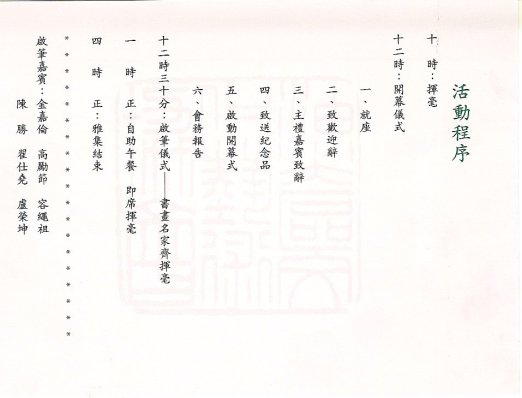 活動程序
十　時：揮毫
十二時：開幕儀式
一、就座
二、致歡迎辭
三、主禮嘉賓致辭
四、致送紀念品
五、啟動開幕式
六、會務報告
十二時三十分：啟筆儀式——書畫名家齊揮毫
一　時　正：自助午餐　即席揮毫
四　時　正：雅集結束
* * * * * * * * * * * * * * * * *
啟筆嘉賓：金嘉倫　高勵節　容繩祖
陳　勝　翟仕堯　盧榮坤